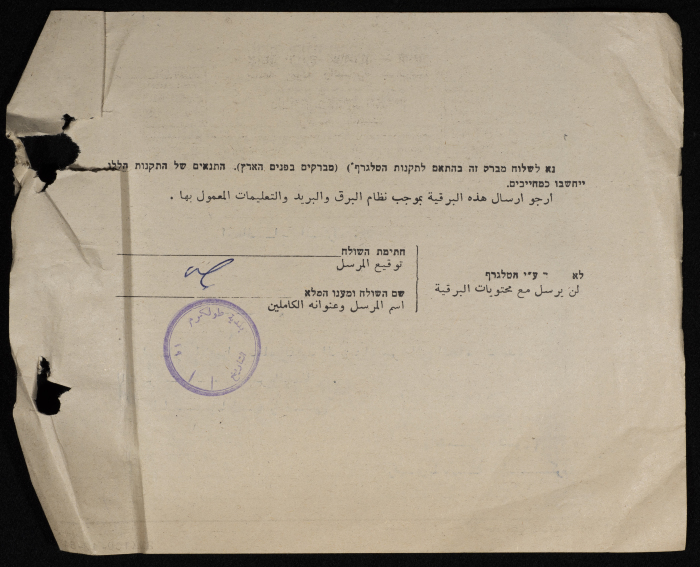 נא לשלוח מברק זה בהתאם לתקנות הטלגרף") (מברקים בפנים הארץ). התנאים של התקנות הללו
ייחשבו כמחייבים.
ارجو ارسال هذه البرقية بموجب نظام البرق والبريد والتعليمات المعمول بها .
חתימת השולח
توقيع المرسل
שם השולח ומענו המלא
اسم المرسل وعنوانه الكاملين
לא ע"י הטלגרף
لن يرسل مع محتويات البرقية
بلدية طولكرم
التاريخ